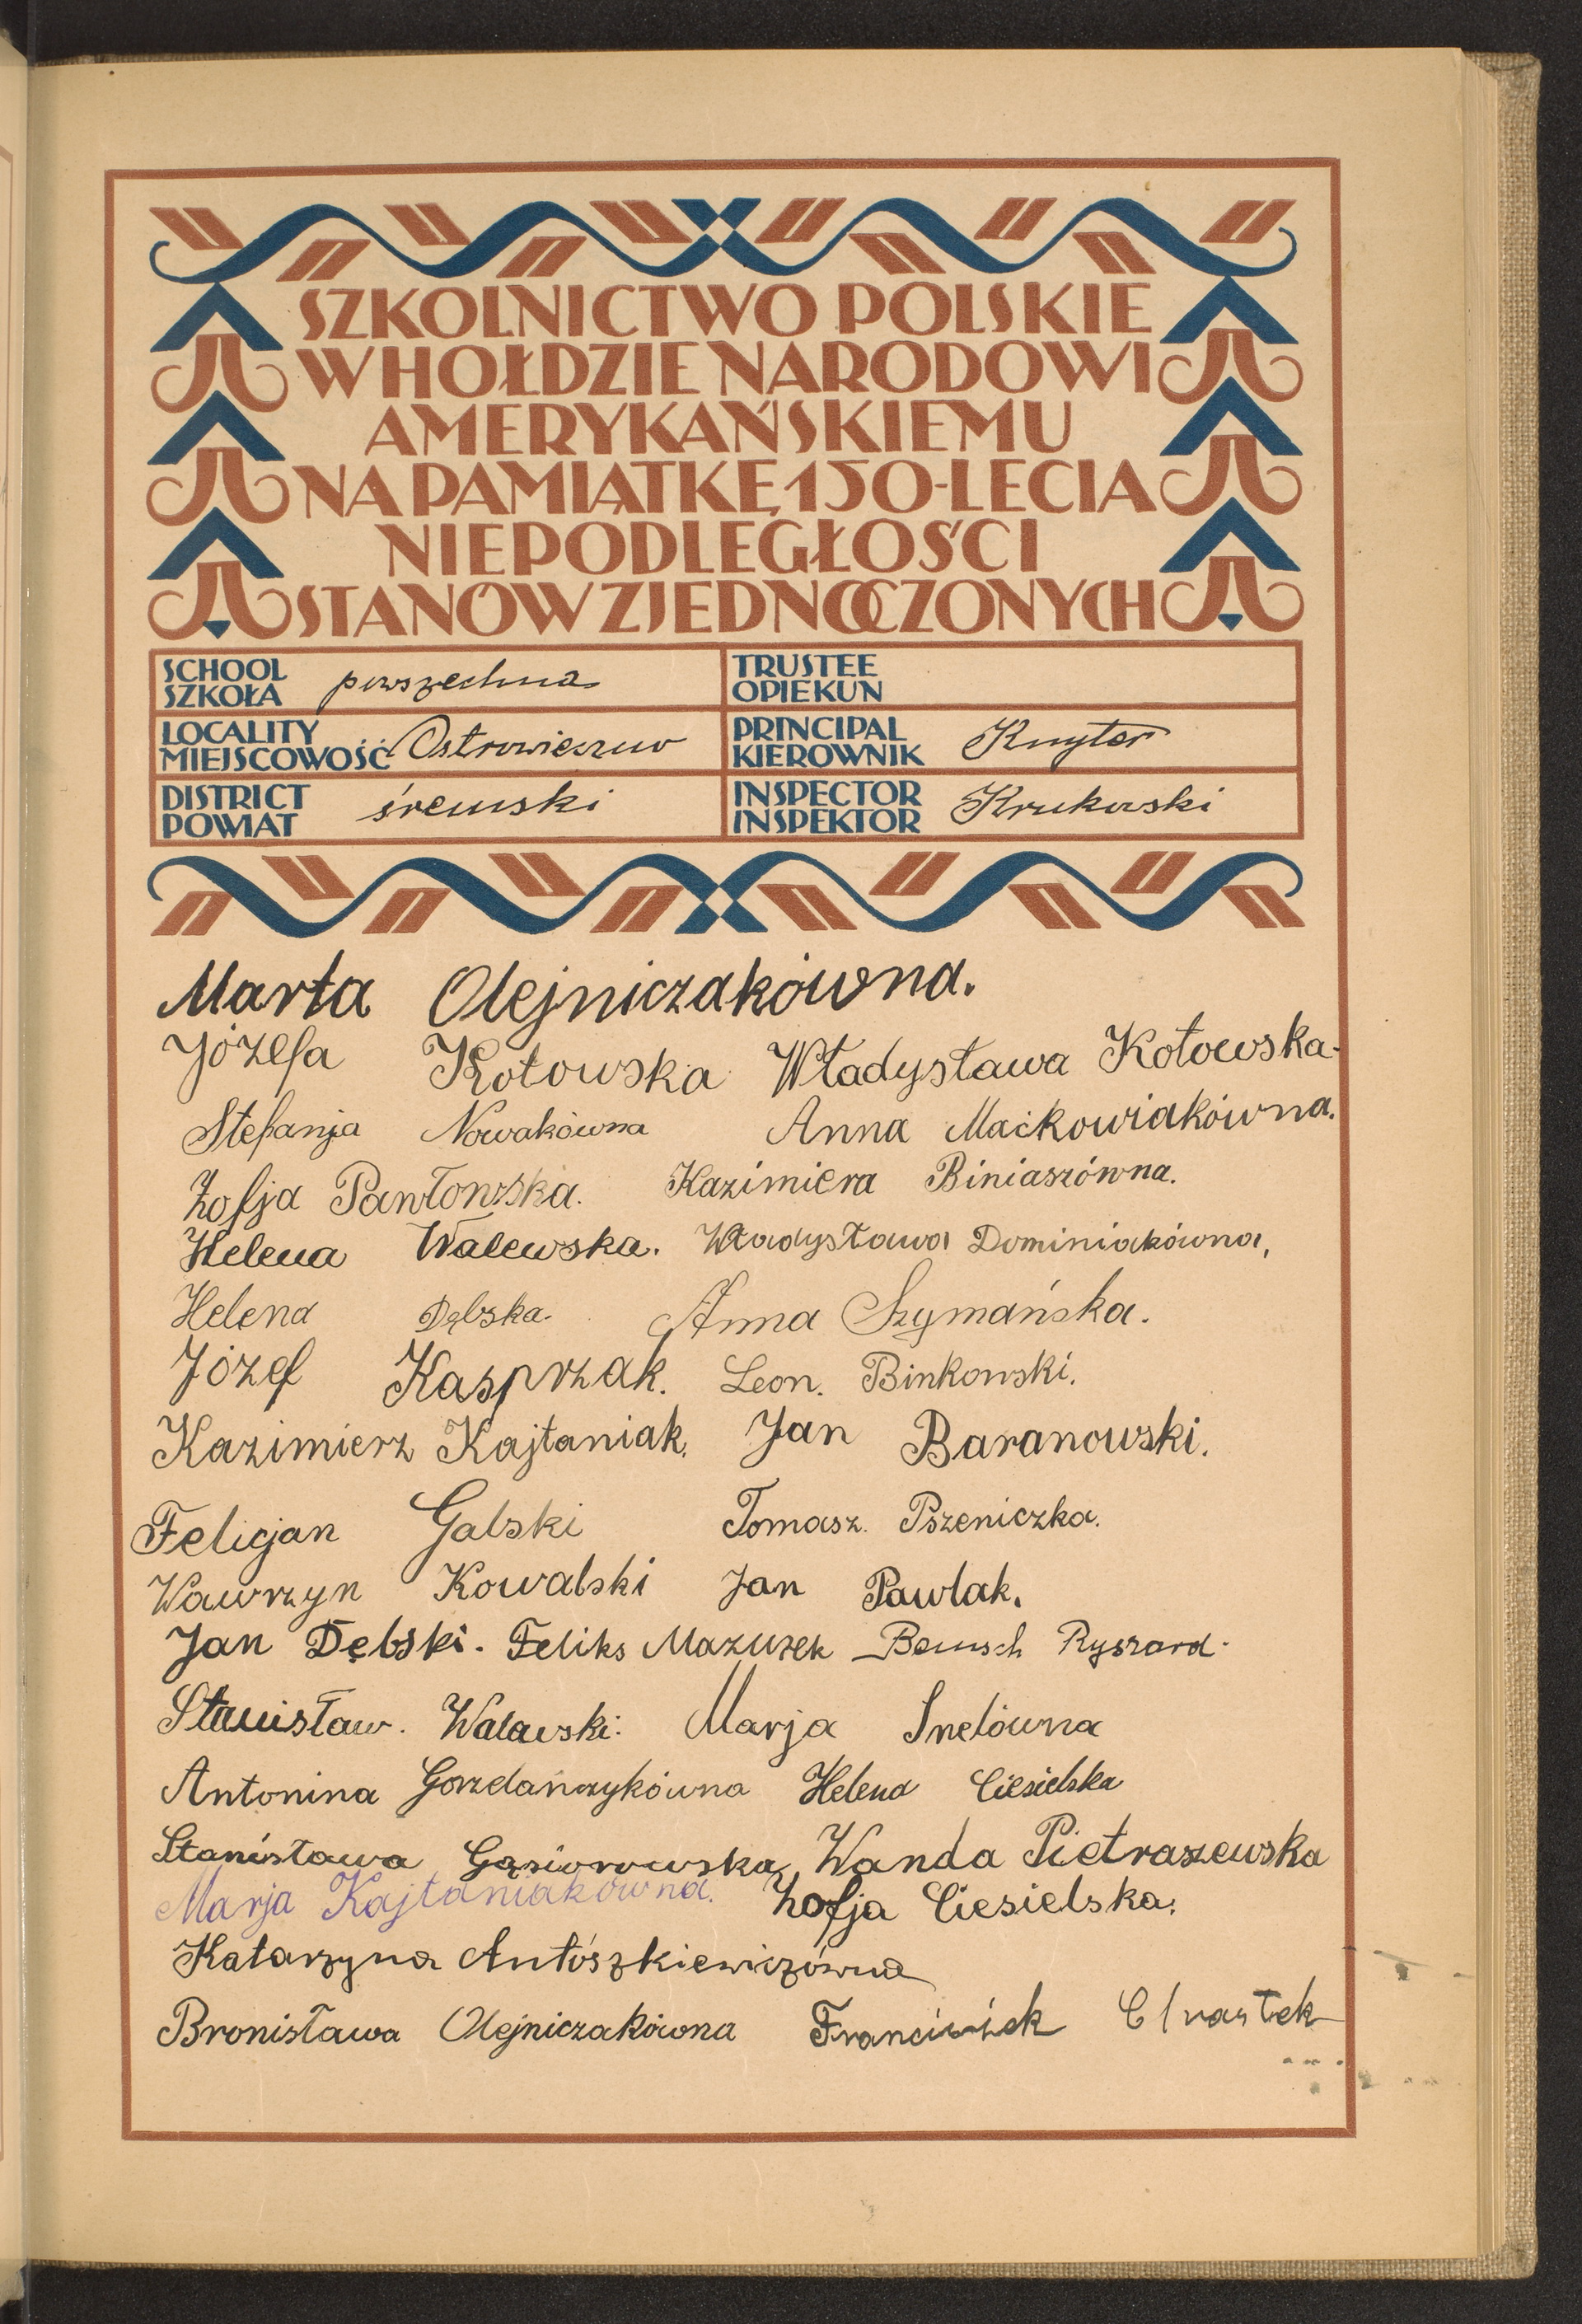 SZKOLNICTWO POLSKIE
W HOŁDZIE NARODOWI
AMERYKAŃSKIEMU
NA PAMIĄTKĘ 150-LECIA
NIEPODLEGŁOŚCI
STANÓW ZJEDNOCZONYCH
SCHOOL
SZKOŁA powszechna
TRUSTEE
OPIEKUN
LOCALITY
MIEJSCOWOŚĆ Ostrowieczno
PRINCIPAL
KIEROWNIK Knyter
DISTRICT
POWIAT śremski
INSPECTOR
INSPEKTOR Krukowski
Marta Olejniczakówna.
Józefa Kotowska Władysława Kotowska
Stefanja Nowakówna Anna Maćkowiakówna.
Zofja Pawłowska. Kazimiera Biniaszówna.
Helena Walewska. Władysława Dominiakówna,
Helena Dębska. Anna Szymańska.
Józef Kasprzak. Leon. Binkowski.
Kazimierz Kajtaniak. Jan Baranowski.
Felicjan Galski Tomasz. Pszeniczka.
Wawrzyn Kowalski Jan Pawlak.
Jan Dębski. Feliks Mazurek Ryszard.
Stanisław. Walewski. Marja Snelówna
Antonina Gorzelańczykówna Helena Ciesielska
Stanisława Gąsiorowska, Wanda Pietraszewska
Marja Kajtaniakówna. Zofja Ciesielska.
Katarzyna Antoszkiewiczówna
Bronisława Olejniczakówna Franciszek